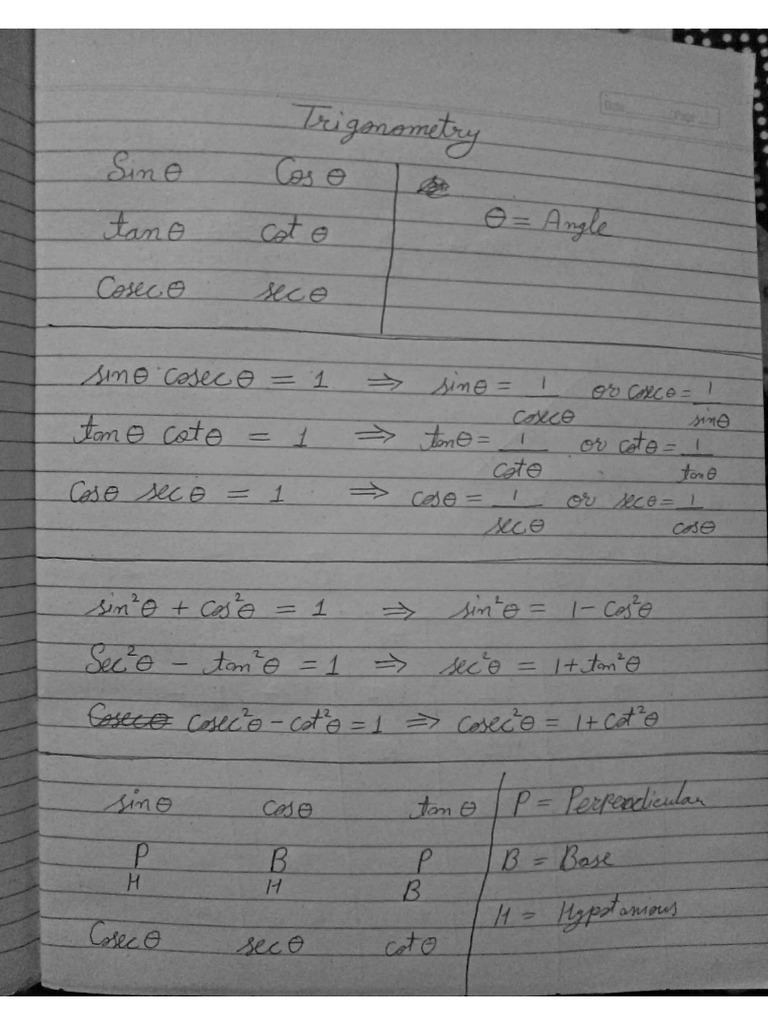 Date Page
Trigonometry
Sinθ Cosθ
θ = Angle
tanθ cotθ
Cosecθ secθ
sinθ cosecθ = 1 ⇒ sinθ = 1/cosecθ or cosecθ = 1/sinθ
tanθ cotθ = 1 ⇒ tanθ = 1/cotθ or cotθ = 1/tanθ
Cosθ secθ = 1 ⇒ cosθ = 1/secθ or secθ = 1/cosθ
sin²θ + cos²θ = 1 ⇒ sin²θ = 1 - Cos²θ
Sec²θ - tan²θ = 1 ⇒ sec²θ = 1 + tan²θ
Cosecθ cosec²θ - cot²θ = 1 ⇒ cosec²θ = 1 + cot²θ
sinθ cosθ tanθ P = Perpendicular
P B P B = Base
H H B
H = Hypotamous
Cosecθ secθ cotθ